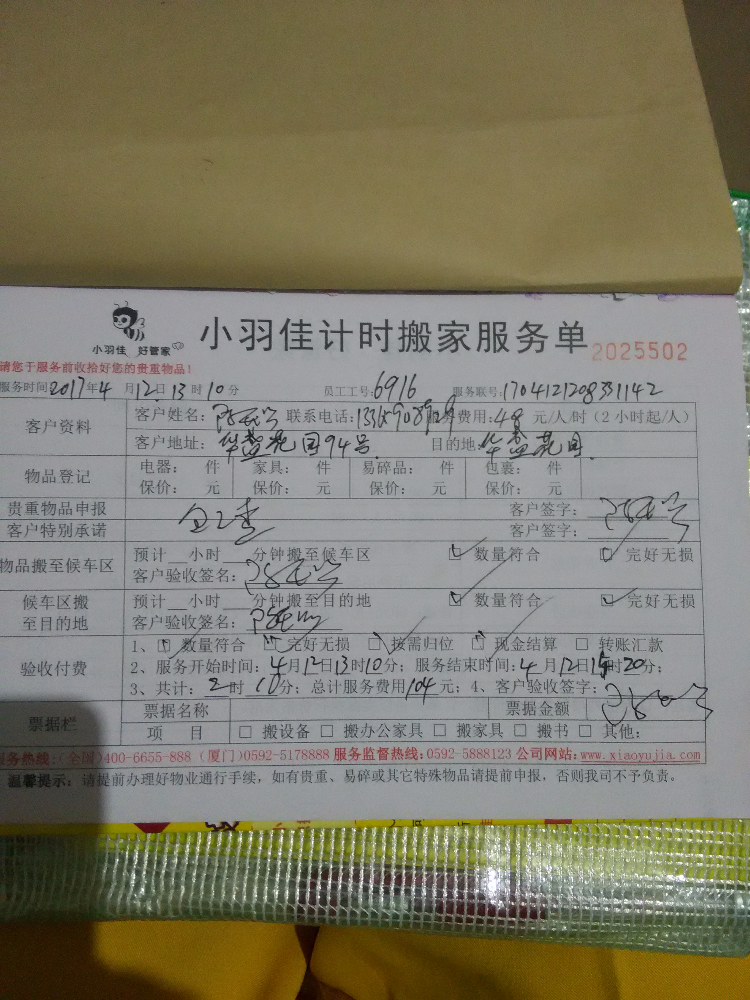 小羽佳 好管家
小羽佳计时搬家服务单 2025502
请您于服务前收拾好您的贵重物品！
服务时间2017年4月12日13时10分 员工工号:6916 服务联号:1704121208331142
客户资料 客户姓名: 联系电话: 服务费用:48元/人/时（2小时起/人）
客户地址: 华鑫花园94号 目的地:华鑫花园
物品登记 电器： 件 家具： 件 易碎品： 件 包裹： 件
保价： 元 保价： 元 保价： 元 保价： 元
贵重物品申报 客户签字：
客户特别承诺 客户签字：
物品搬至候车区 预计 小时 分钟搬至候车区 ☑ 数量符合 ☑ 完好无损
客户验收签名：
候车区搬至目的地 预计 小时 分钟搬至目的地 ☑ 数量符合 ☑ 完好无损
客户验收签名：
验收付费 1、☑ 数量符合 ☑ 完好无损 ☑ 按需归位 ☑ 现金结算 □ 转账汇款
2、服务开始时间:4月12日13时10分；服务结束时间:4月12日15时20分；
3、共计：2时10分；总计服务费用104元；4、客户验收签字：
票据栏 票据名称 票据金额
项 目 □ 搬设备 □ 搬办公家具 □ 搬家具 □ 搬书 □ 其他:
服务热线:(全国)400-6655-888 (厦门)0592-5178888 服务监督热线:0592-5888123 公司网站:www.xiaoyujia.com
温馨提示：请提前办理好物业通行手续，如有贵重、易碎或其它特殊物品请提前申报，否则我司不予负责。